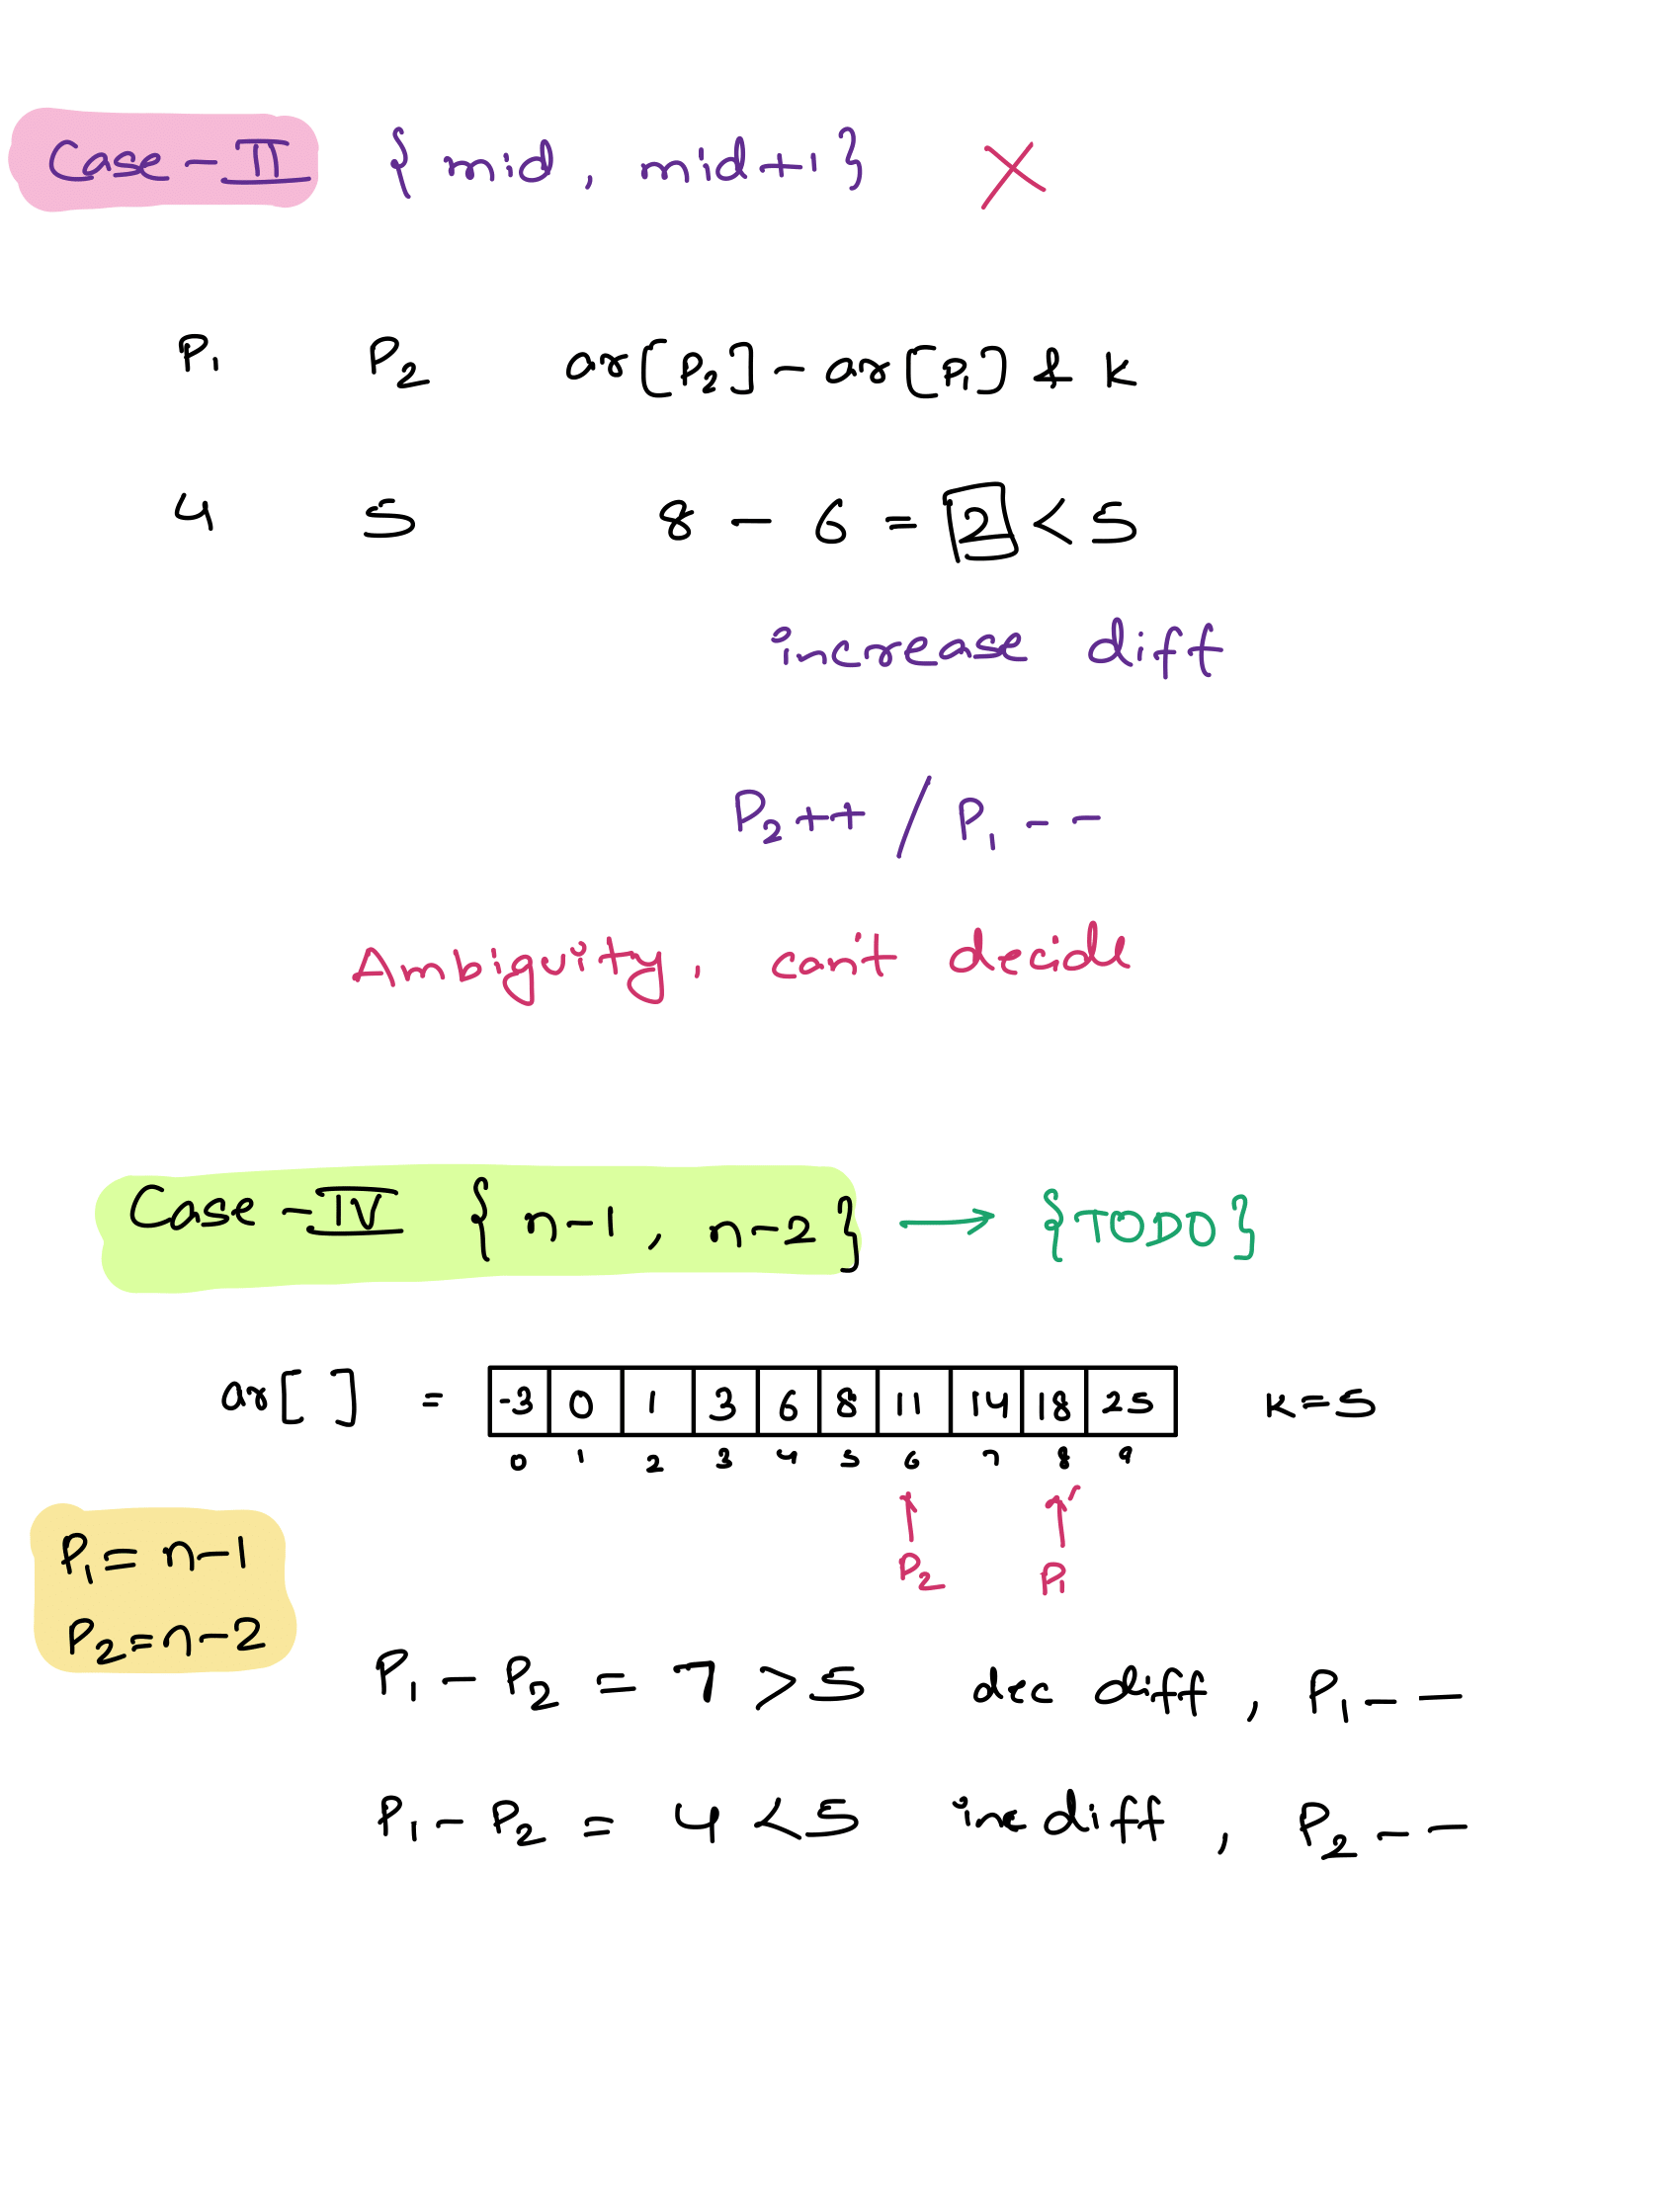 Case - II { mid, mid+1 } X
P1 P2 ar[P2] - ar[P1] & k
4 5 8 - 6 = 2 < 5
increase diff
P2++ / P1--
Ambiguity, can't decide
Case - IV { n-1, n-2 } → {TODO}
ar[ ] = -3 0 1 3 6 8 11 14 18 25 K=5
0 1 2 3 4 5 6 7 8 9
P2 P1
P1 = n-1
P2 = n-2
P1 - P2 = 7 > 5 dec diff, P1--
P1 - P2 = 4 < 5 inc diff, P2--